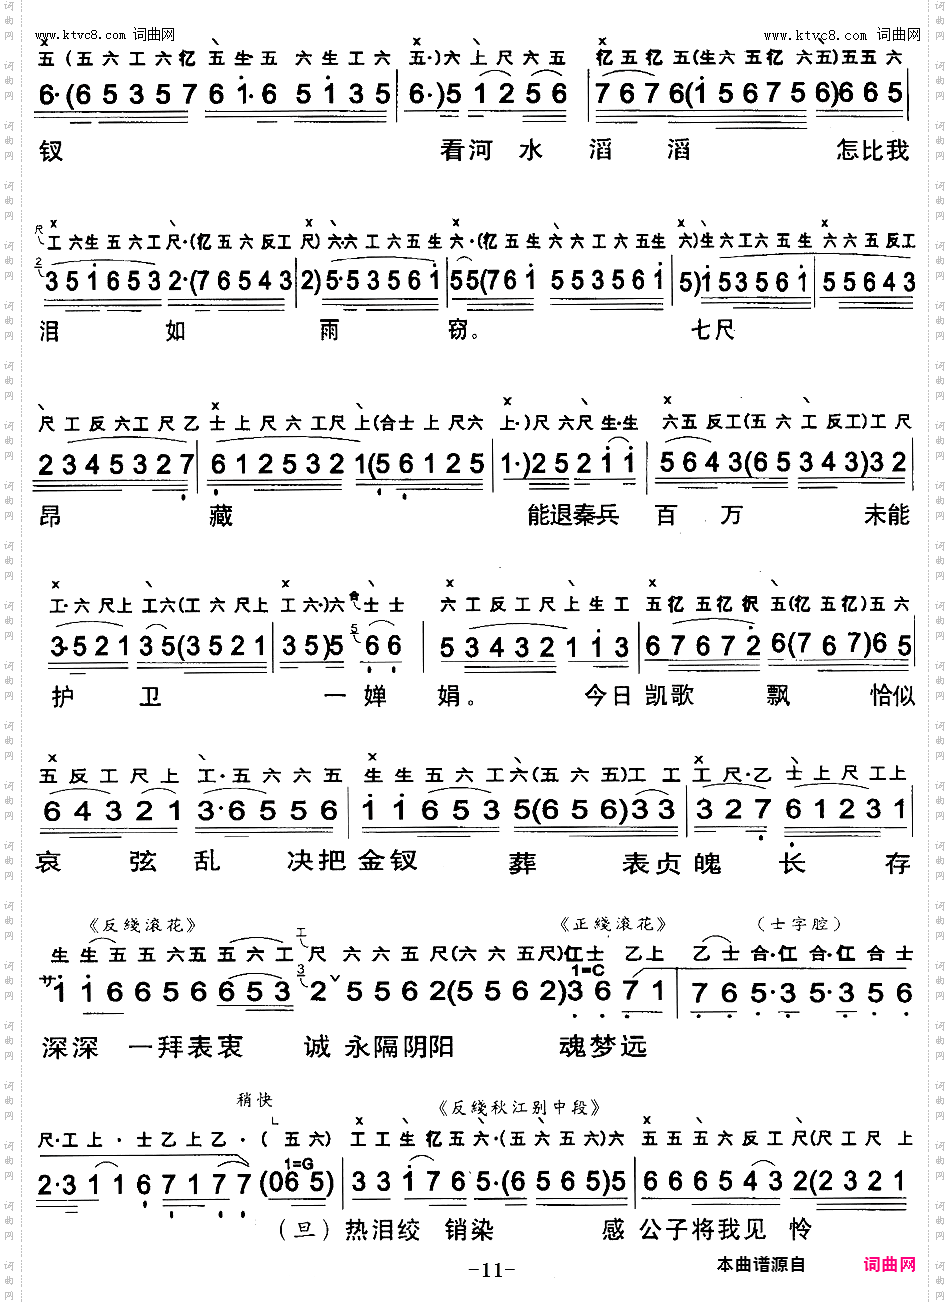 www.ktvc8.com 词曲网
www.ktvc8.com 词曲网
五 (五六工六亿 五生五 六生工六 五·)六 上尺六五 亿五亿 五(生六五亿 六五)五五六
6·(65357 61·6 5135 6·)5 1256 7676(156756)665
钗 看河水滔滔 怎比我
尺 工六生五六工 尺·(亿五六反工 尺)六六工六五生 六·(亿五生 六六工六五生 六)生六工六五生 六六五反工
2 351653 2·(76543 2)5·53561 55(761 553561 5)153561 55643
泪 如 雨 窃。 七尺
尺工反六工尺乙 士上尺六工尺上(合士上尺六 上·)尺六尺生·生 六五反工(五六工反工)工尺
2345327 6125321(56125 1·)25211 5643(65343)32
昂 藏 能退秦兵 百万 未能
工·六尺上 工六(工六尺上 工六·)六 合 士士 六工反工尺上生工 五亿五亿伬 五(亿五亿)五六
3·521 35(3521 35)5 5 66 53432113 67672 6(767)65
护卫 一婵娟。 今日凯歌飘 恰似
五反工尺上 工·五六六五 生生五六工六(五六五)工工 工尺·乙 士上尺工上
64321 3·6556 116535(656)33 327 61231
哀弦乱 决把金钗葬 表贞魄长存
《反綫滚花》 《正綫滚花》 (士字腔)
生生五五六五五六工 工 尺六六五尺(六六五尺)仜士乙上 乙士合·仜合·仜合士
1=C
サ116656653 3 2 5562(5562)3671 765·35·356
深深一拜表衷 诚 永隔阴阳 魂梦远
稍快 《反綫秋江别中段》
尺·工上·士乙上乙·(五六) 工工生亿五六·(五六五六)六 五五五六反工尺(尺工尺上
1=G
2·31167177(065) 331765·(6565)5 6665432(2321
(旦)热泪绞销染 感公子将我见怜
-11-
本曲谱源自 词曲网